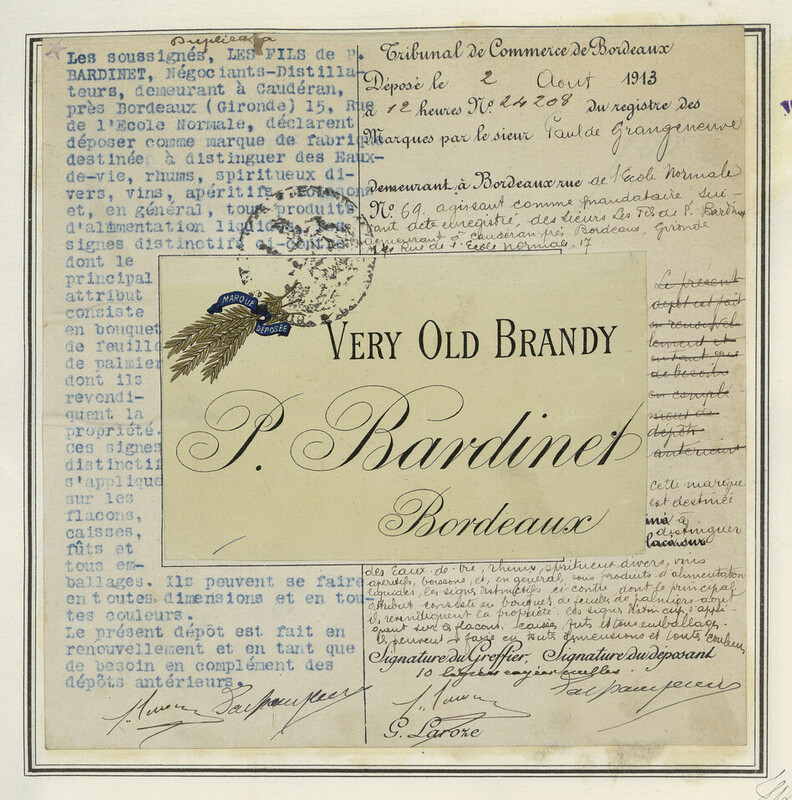 Duplicata
Les soussignés, LES FILS de P.
BARDINET, Négociants-Distilla-
teurs, demeurant à Caudéran,
près Bordeaux (Gironde) 15, Rue
de l'Ecole Normale, déclarent
déposer comme marque de fabrique
destinée à distinguer des Eaux-
de-vie, rhums, spiritueux di-
vers, vins, apéritifs, boissons
et, en général, tous produits
d'alimentation liquides, les
signes distinctifs ci-contre
dont le
principal
attribut
consiste
en bouquet
de feuille
de palmier
dont ils
revendi-
quent la
propriété.
Ces signes
distinctif
s'applique
sur les
flacons,
caisses,
fûts et
tous em-
ballages. Ils peuvent se faire
en toutes dimensions et en tou-
tes couleurs.
Le présent dépôt est fait en
renouvellement et en tant que
de besoin en complément des
dépôts antérieurs.
Tribunal de Commerce de Bordeaux
Déposé le 2 Aout 1913
à 12 heures No. 24208 du registre des
Marques par le sieur Paul de Grangeneuve
demeurant à Bordeaux rue de l'Ecole Normale
No. 69, agissant comme mandataire sui-
vant acte enregistré, des sieurs Les Fils de P. Bardinet
demeurant à Caudéran près Bordeaux, Gironde
Rue de l'Ecole Normale, 17
MARQUE
DÉPOSÉE
VERY OLD BRANDY
P. Bardinet
Bordeaux
Le présent
dépôt est fait
en renouvel-
lement et
en tant que
de besoin
en complé-
ment de
dépôts
antérieurs
cette marque
est destinée
à
distinguer
des Eaux-de-vie, rhums, spiritueux divers, vins
apéritifs, boissons, et, en général, tous produits d'alimentation
liquides, les signes distinctifs ci-contre dont le principal
attribut consiste en bouquet de feuilles de palmiers dont
ils revendiquent la propriété. Ces signes distinctifs s'appli-
quent sur les flacons, caisses, futs et tous emballages.
Ils peuvent se faire en toutes dimensions et toutes couleurs
Signature du Greffier, Signature du déposant
G. Laroze